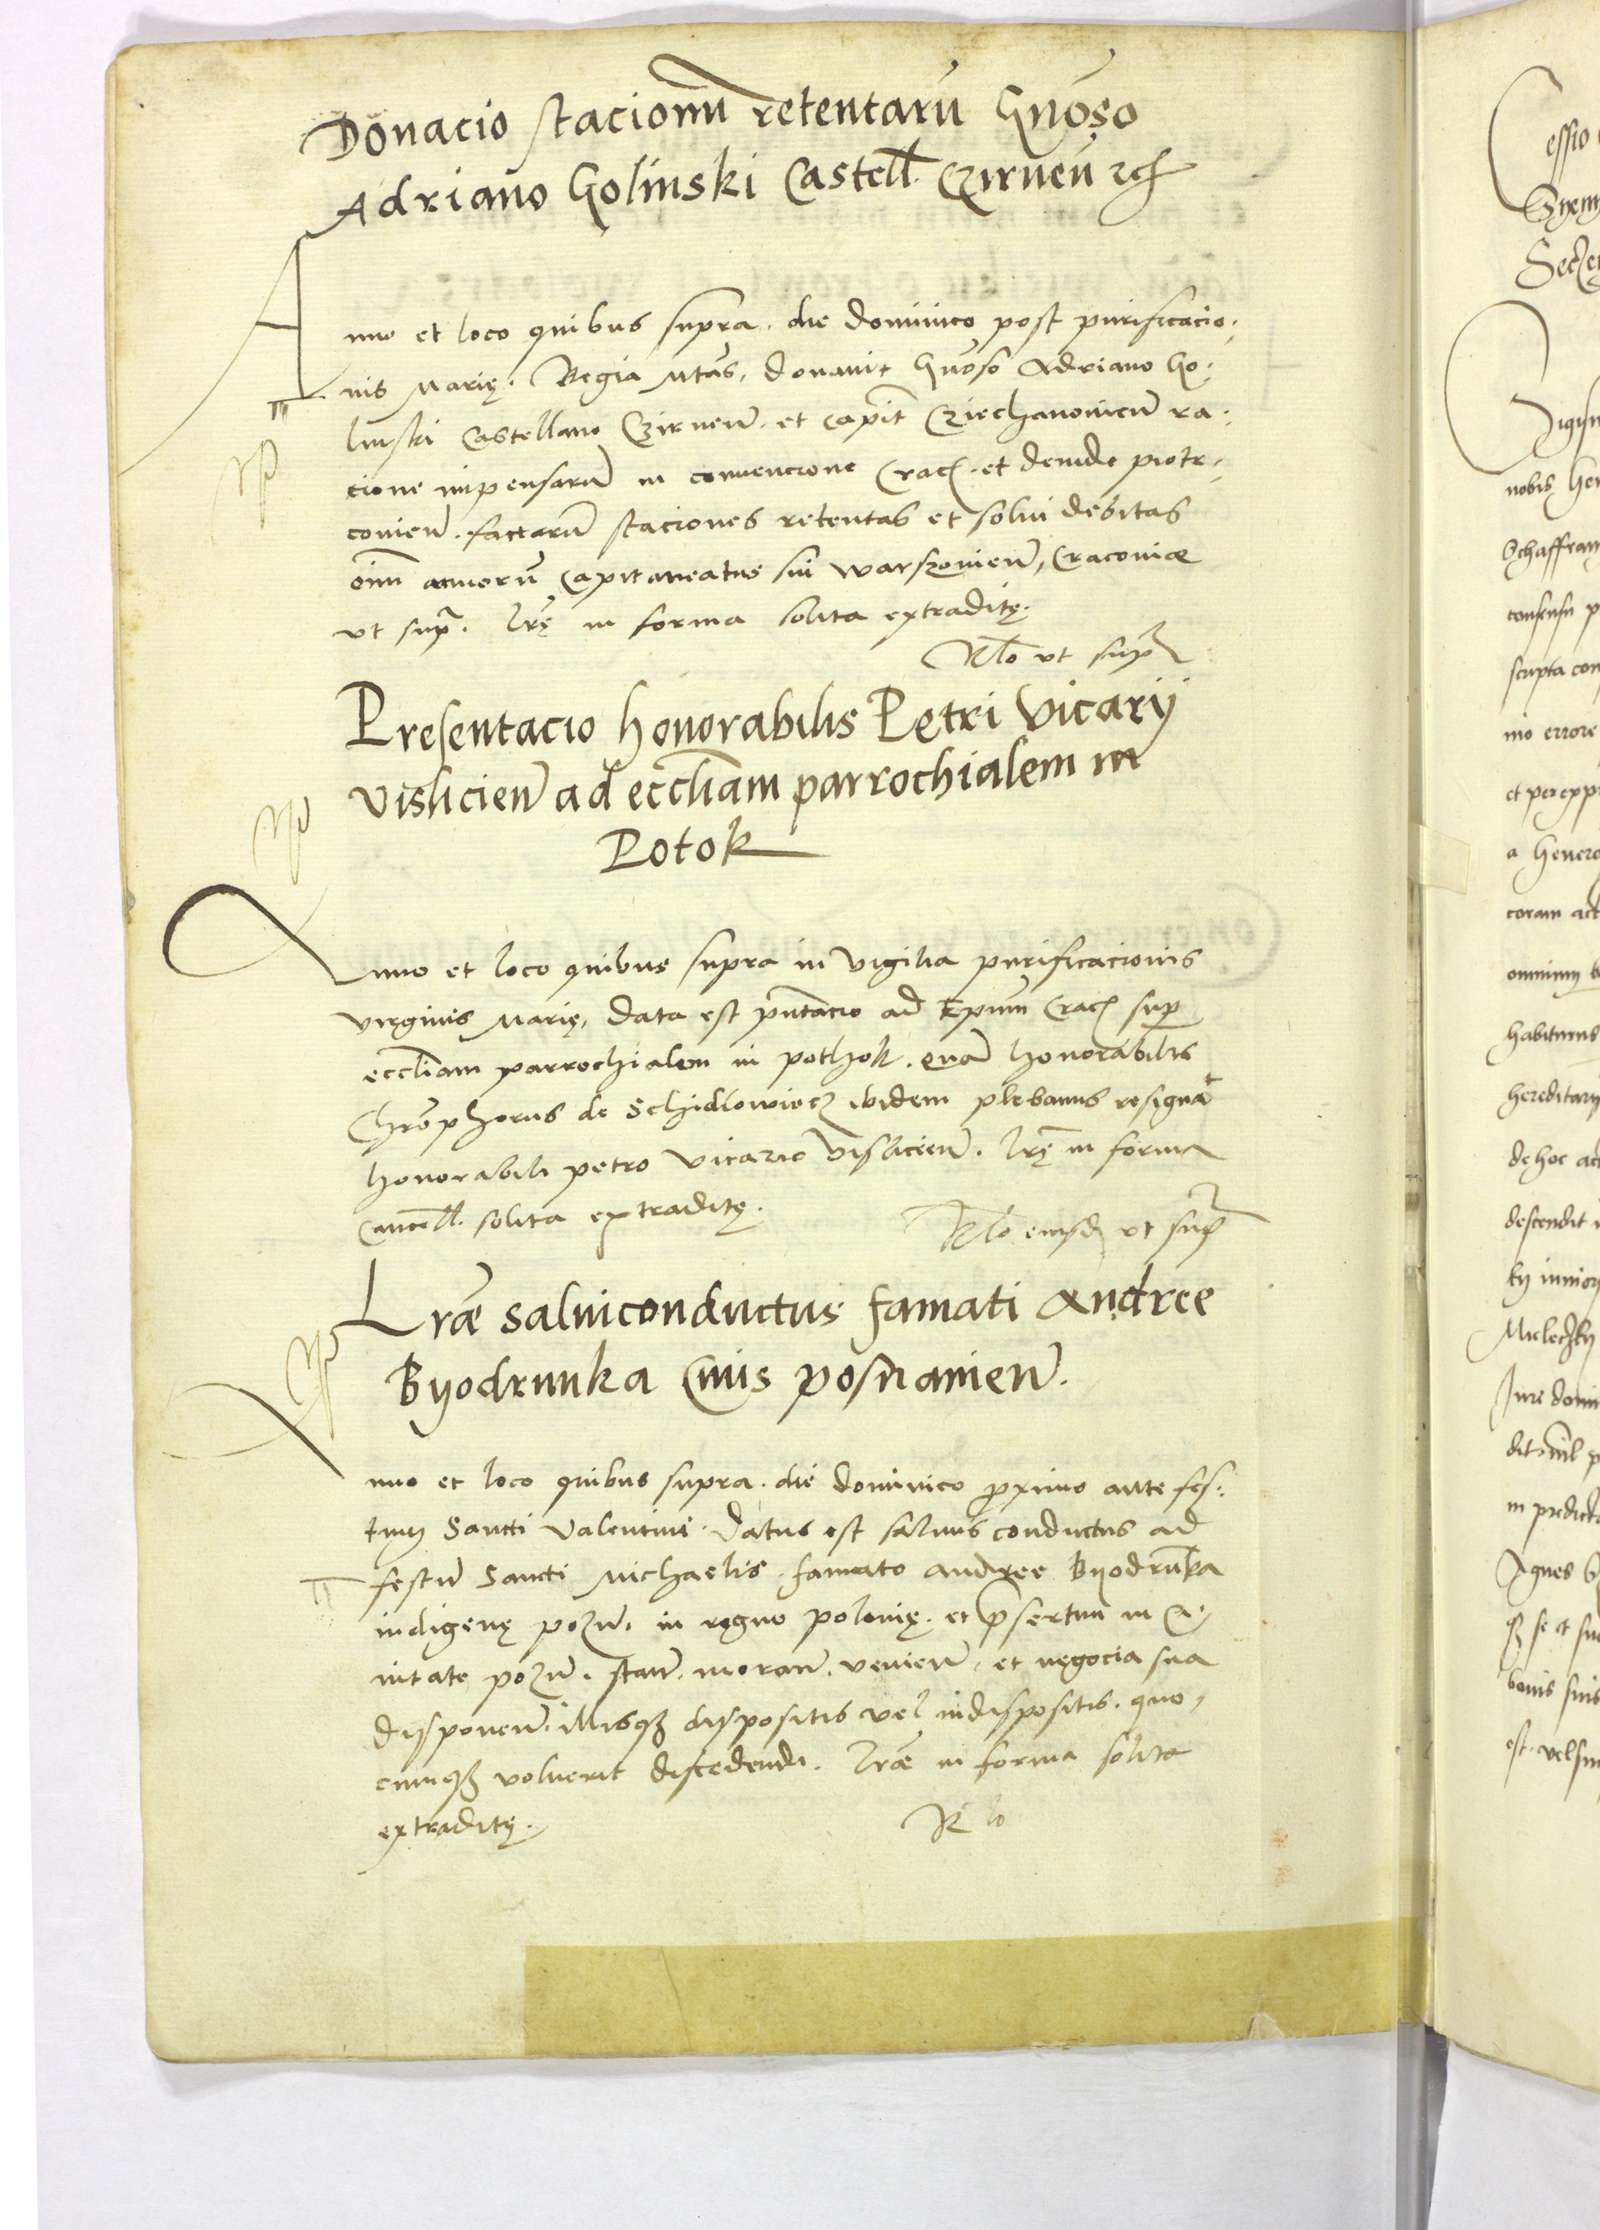 Donacio stacionũ retentarũ Gñoso
Adriano Golinski Castell. Czirneñ etc
Anno et loco quibus supra. die dominico post purificacio-
nis Marię. Regia Mtas, donavit Gñoso Adriano Go-
linski Castellano Czirneñ. et Capit Cziechanovieñ ra-
cione impensarũ in convencione Crac. et deinde piotr-
covieñ. factarũ staciones retentas et solvi debitas
oĩm annorũ Capitaneatus sui Warszovieñ, Cracoviæ
ut supr. lrę in forma solita extraditę.
Rlo ut supr
Presentacio honorabilis Petri Vicarij
Visliciеñ ad eccliam parrochialem in
Potok
Anno et loco quibus supra in vigilia purificacionis
virginis Marię, data est pñtacio ad Epum Crac sup
eccliam parrochialem in pothok. quã honorabilis
Chrõphorus de Schidlowiecz ibidem plebanus resignat
honorabili petro vicario Visliciеñ. lrę in forma
Cancell. solita extraditę.
Rlo eiusd ut supr
Lræ salviconductus famati Andree
Byodrunka Civis posnanieñ.
Anno et loco quibus supra. die dominico proximo ante fes-
tum Sancti Valentini. datus est salvus conductus ad
festũ Sancti Michaelis. famato Andree Byodrũka
indigenę pozñ. in regno polonię. et psertim in Ci-
vitate pozñ. stañ. morañ. venieñ. et negocia sua
disponeñ. illisqz dispositis vel indispositis. quo-
cumqz voluerit discedendi. lræ in forma solita
extraditę.
Rlo
essio
Schaffran
errore
a Genero
coram act
omnium b
habiturus
hereditary
de hoc act
descendit
ky iunior
Mieleczky
Iure domi
Agnes
bonis suis